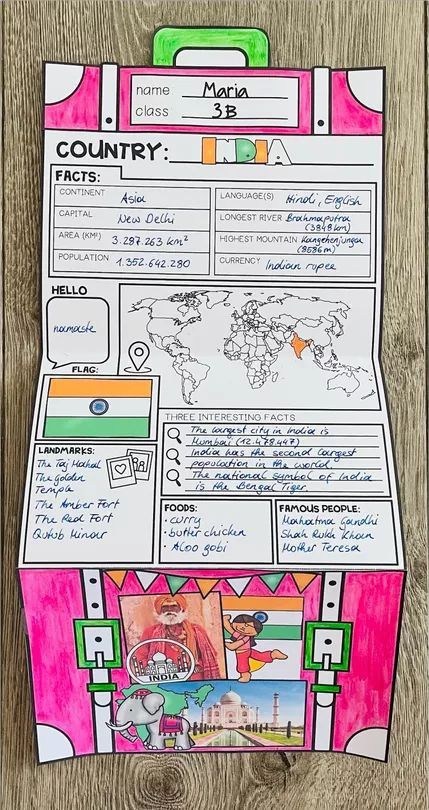 name Maria
class 3B
COUNTRY: INDIA
FACTS:
CONTINENT Asia
CAPITAL New Delhi
AREA (KM²) 3.287.263 km²
POPULATION 1.352.642.280
LANGUAGE(S) Hindi, English
LONGEST RIVER Brahmaputra
(3848 km)
HIGHEST MOUNTAIN Kangchenjunga
(8586m)
CURRENCY Indian rupee
HELLO
namaste
FLAG:
THREE INTERESTING FACTS
The largest city in India is
Mumbai (12.478.447)
India has the second largest
population in the world.
The national symbol of India
is the Bengal Tiger.
LANDMARKS:
The Taj Mahal
The Golden
Temple
The Amber Fort
The Red Fort
Qutub Minar
FOODS:
• curry
• butter chicken
• Aloo gobi
FAMOUS PEOPLE:
Mahatma Gandhi
Shah Rukh Khan
Mother Teresa
INDIA